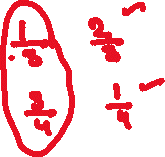 1/8 2/8 ✓
3/4 1/4 ✓